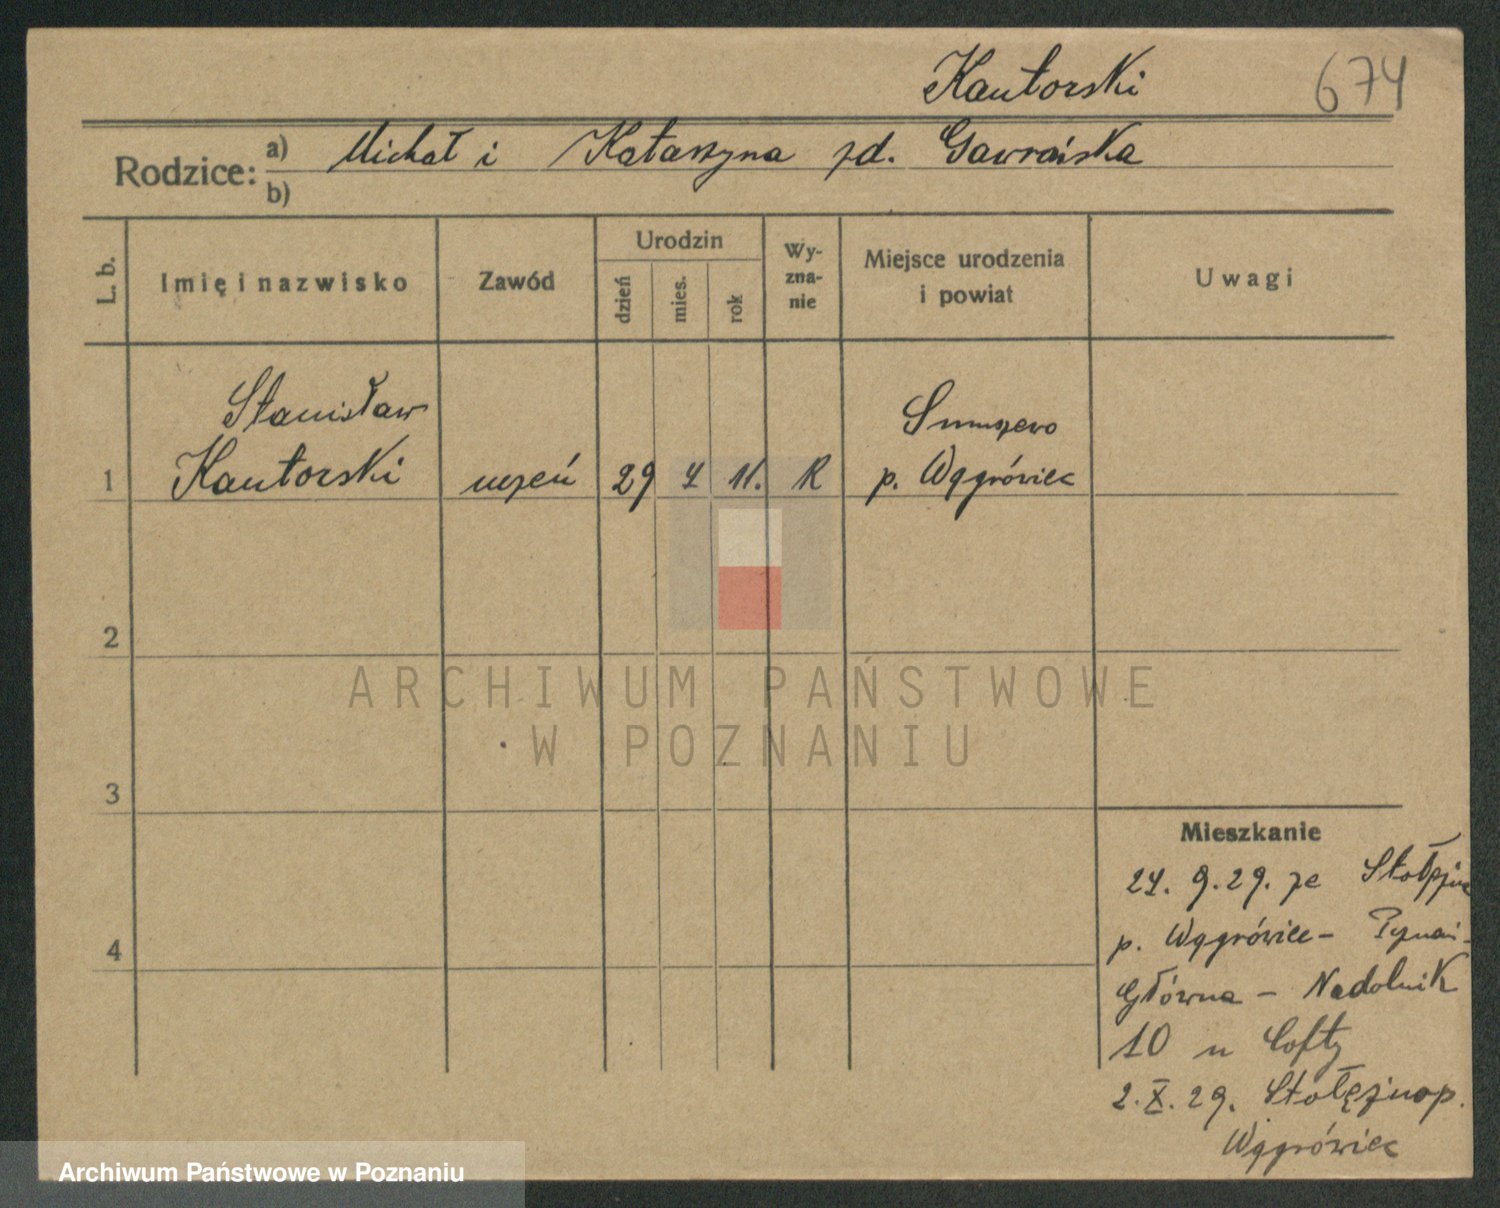 Kantorski 674
Rodzice: a) Michał i Katarzyna zd. Gawrańska
b)
L. b. Imię i nazwisko Zawód Urodzin dzień mies. rok Wy-zna-nie Miejsce urodzenia i powiat Uwagi
Stanisław Smuszewo
1 Kantorski uczeń 29 4 11. R p. Wągrówiec
2
ARCHIWUM PAŃSTWOWE
W POZNANIU
3
Mieszkanie
24. 9. 29. ze
4 p. Wągrówiec -
Główna - Nadolnik
10 u
2. X. 29. Stołężyn p.
Wągrówiec
Archiwum Państwowe w Poznaniu